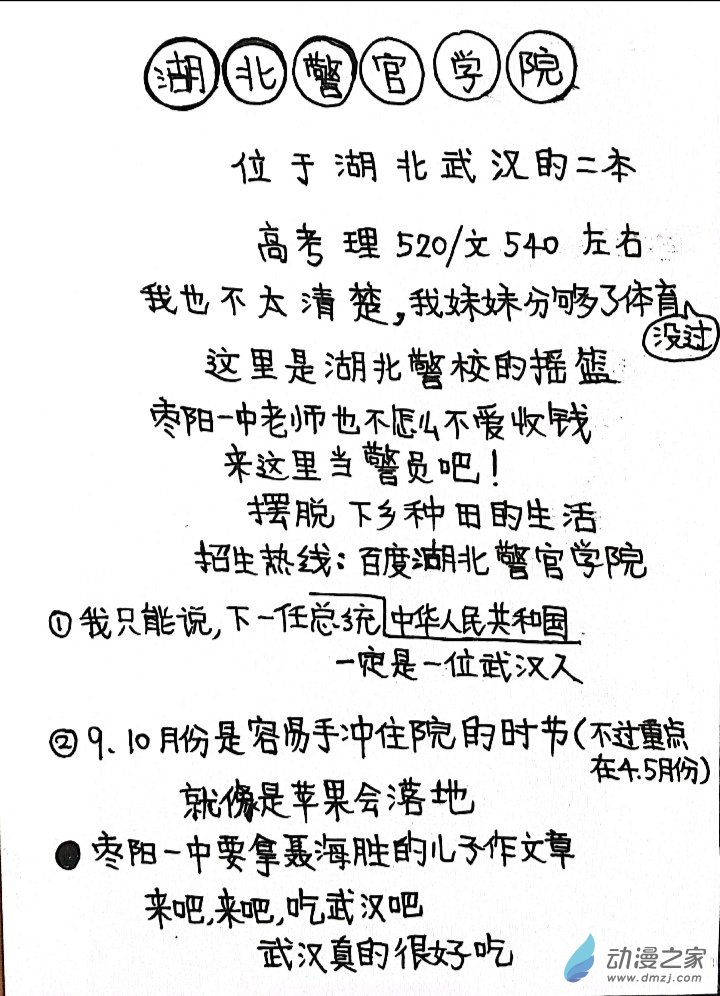 湖北警官学院
位于湖北武汉的二本
高考理520/文540左右
我也不太清楚,我妹妹分够了体育
没过
这里是湖北警校的摇篮
枣阳一中老师也不怎么不爱收钱
来这里当警员吧!
摆脱下乡种田的生活
招生热线:百度湖北警官学院
①我只能说,下一任总统 中华人民共和国
一定是一位武汉人
②9、10月份是容易手冲住院的时节(不过重点
在4.5月份)
就像是苹果会落地
●枣阳一中要拿聂海胜的儿子作文章
来吧,来吧,吃武汉吧
武汉真的很好吃
动漫之家
www.dmzj.com